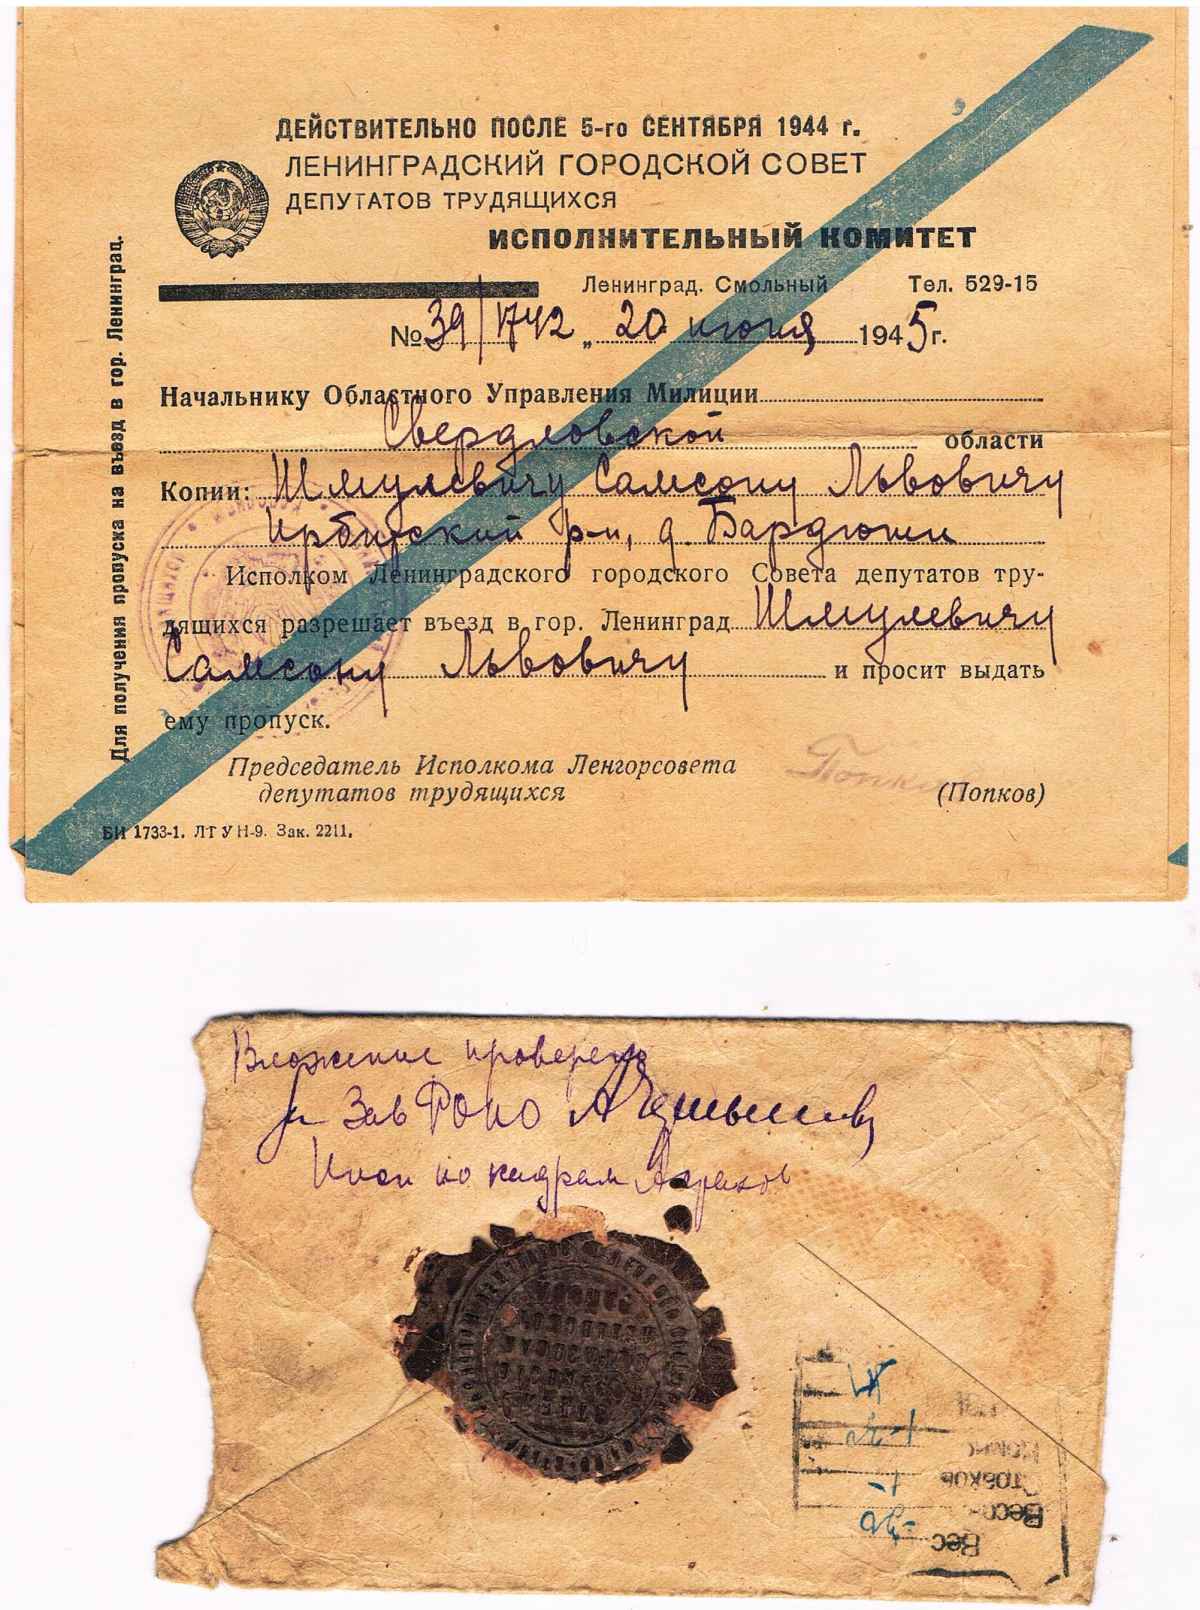 ДЕЙСТВИТЕЛЬНО ПОСЛЕ 5-го СЕНТЯБРЯ 1944 г.
ЛЕНИНГРАДСКИЙ ГОРОДСКОЙ СОВЕТ
ДЕПУТАТОВ ТРУДЯЩИХСЯ
ИСПОЛНИТЕЛЬНЫЙ КОМИТЕТ
Ленинград. Смольный Тел. 529-15
№ 39/1742 „ 20 июня 1945 г.
Начальнику Областного Управления Милиции
Свердловской области
Копии: Шмулевичу Самсону Львовичу
Ирбитский р-н, д. Бардюши
Исполком Ленинградского городского Совета депутатов тру-
дящихся разрешает въезд в гор. Ленинград Шмулевичу
Самсону Львовичу и просит выдать
ему пропуск.
Председатель Исполкома Ленгорсовета
депутатов трудящихся (Попков)
Попков
БИ 1733-1. ЛТУ Н-9. Зак. 2211.
Для получения пропуска на въезд в гор. Ленинград.
Вложение проверено
Зав РОНО
по кадрам
Вес